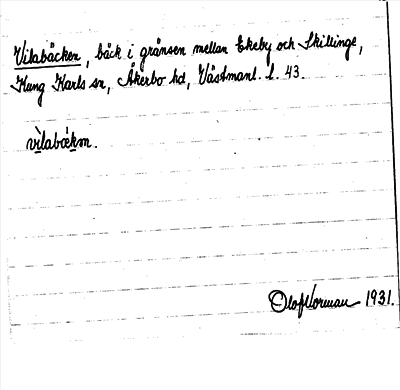 Vilabäcken, bäck i gränsen mellan Ekeby och Skillinge,
Kung Karls sn, Åkerbo hd, Västmanl. l. 43
vìlabœ́km.
Olof Norman 1931.